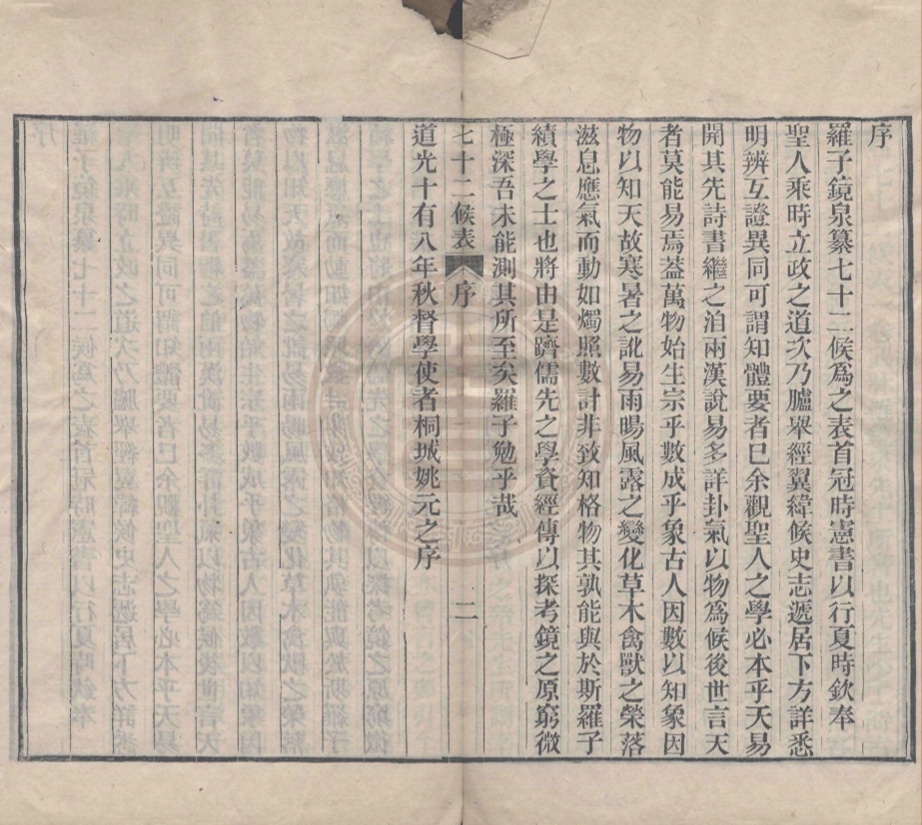 序
羅子鏡泉纂七十二候爲之表首冠時憲書以行夏時欽奉
聖人乘時立政之道次乃臚舉經翼緯候史志遞居下方詳悉
明辨互證異同可謂知體要者已余觀聖人之學必本乎天易
開其先詩書繼之洎兩漢說易多詳卦氣以物爲候後世言天
者莫能易焉葢萬物始生宗乎數成乎象古人因數以知象因
物以知天故寒暑之訛易雨暘風露之變化草木禽獸之榮落
滋息應氣而動如燭照數計非致知格物其孰能與於斯羅子
績學之士也將由是躋儒先之學資經傳以探考鏡之原窮微
極深吾未能測其所至矣羅子勉乎哉
七十二候表 序 二
道光十有八年秋督學使者桐城姚元之序